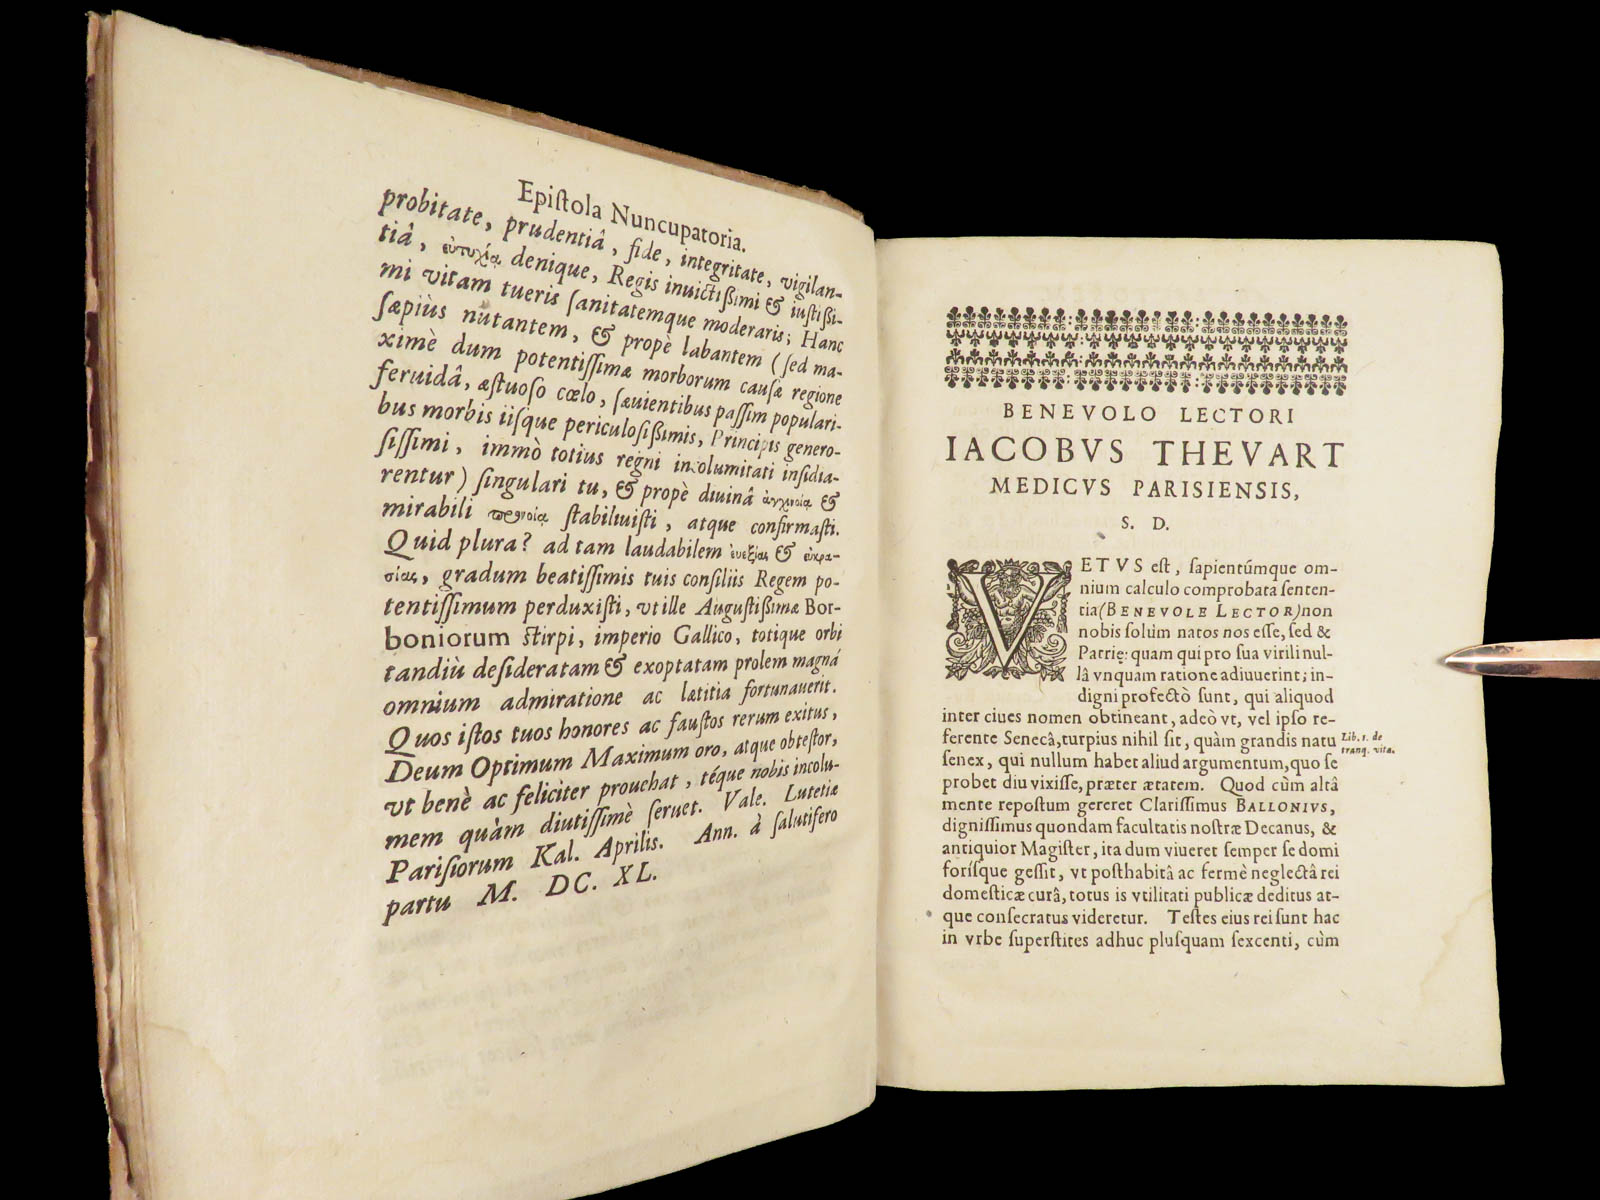 Epiſtola Nuncupatoria.
probitate, prudentiâ, fide, integritate, vigilan-
tiâ, εὐτυχίᾳ denique, Regis inuictiſsimi & iuſtiſsi-
mi vitam tueris ſanitatemque moderaris; Hanc
ſæpiùs nutantem, & propè labantem (ſed ma-
ximè dum potentiſſimæ morborum cauſæ regione
feruidâ, æſtuoſo cœlo, ſæuientibus paſſim populari-
bus morbis iiſque periculoſiſsimis, Principis genero-
ſiſſimi, immò totius regni incolumitati inſidia-
rentur) ſingulari tu, & propè diuinâ ἀγχινοίᾳ &
mirabili προνοίᾳ ſtabiliuiſti, atque confirmaſti.
Quid plura? ad tam laudabilem εὐεξίας & εὐκρα-
σίας, gradum beatiſſimis tuis conſiliis Regem po-
tentiſſimum perduxiſti, vt ille Auguſtiſsimæ Bor-
boniorum ſtirpi, imperio Gallico, totique orbi
tandiù deſideratam & exoptatam prolem magnâ
omnium admiratione ac lætitia fortunauerit.
Quos iſtos tuos honores ac fauſtos rerum exitus,
Deum Optimum Maximum oro, atque obteſtor,
vt benè ac feliciter prouehat, téque nobis incolu-
mem quàm diutiſſimè ſeruet. Vale. Lutetiæ
Pariſiorum Kal. Aprilis. Ann. à ſalutifero
partu M. DC. XL.
BENEVOLO LECTORI
IACOBVS THEVART
MEDICVS PARISIENSIS,
S. D.
VETVS eſt, ſapientúmque om-
nium calculo comprobata ſenten-
tia (BENEVOLE LECTOR) non
nobis ſolùm natos nos eſſe, ſed &
Patrię: quam qui pro ſua virili nul-
lâ vnquam ratione adiuuerint; in-
digni profectò ſunt, qui aliquod
inter ciues nomen obtineant, adeò vt, vel ipſo re-
ferente Senecâ, turpius nihil ſit, quàm grandis natu
ſenex, qui nullum habet aliud argumentum, quo ſe
probet diu vixiſſe, præter ætatem. Quod cùm altâ
mente repoſtum gereret Clariſſimus BALLONIVS,
digniſſimus quondam facultatis noſtræ Decanus, &
antiquior Magiſter, ita dum viueret ſemper ſe domi
foríſque geſſit, vt poſthabitâ ac fermè neglectâ rei
domeſticæ curâ, totus is vtilitati publicæ deditus at-
que conſecratus videretur. Teſtes eius rei ſunt hac
in vrbe ſuperſtites adhuc pluſquam ſexcenti, cùm
Lib. 1. de
tranq. vita.